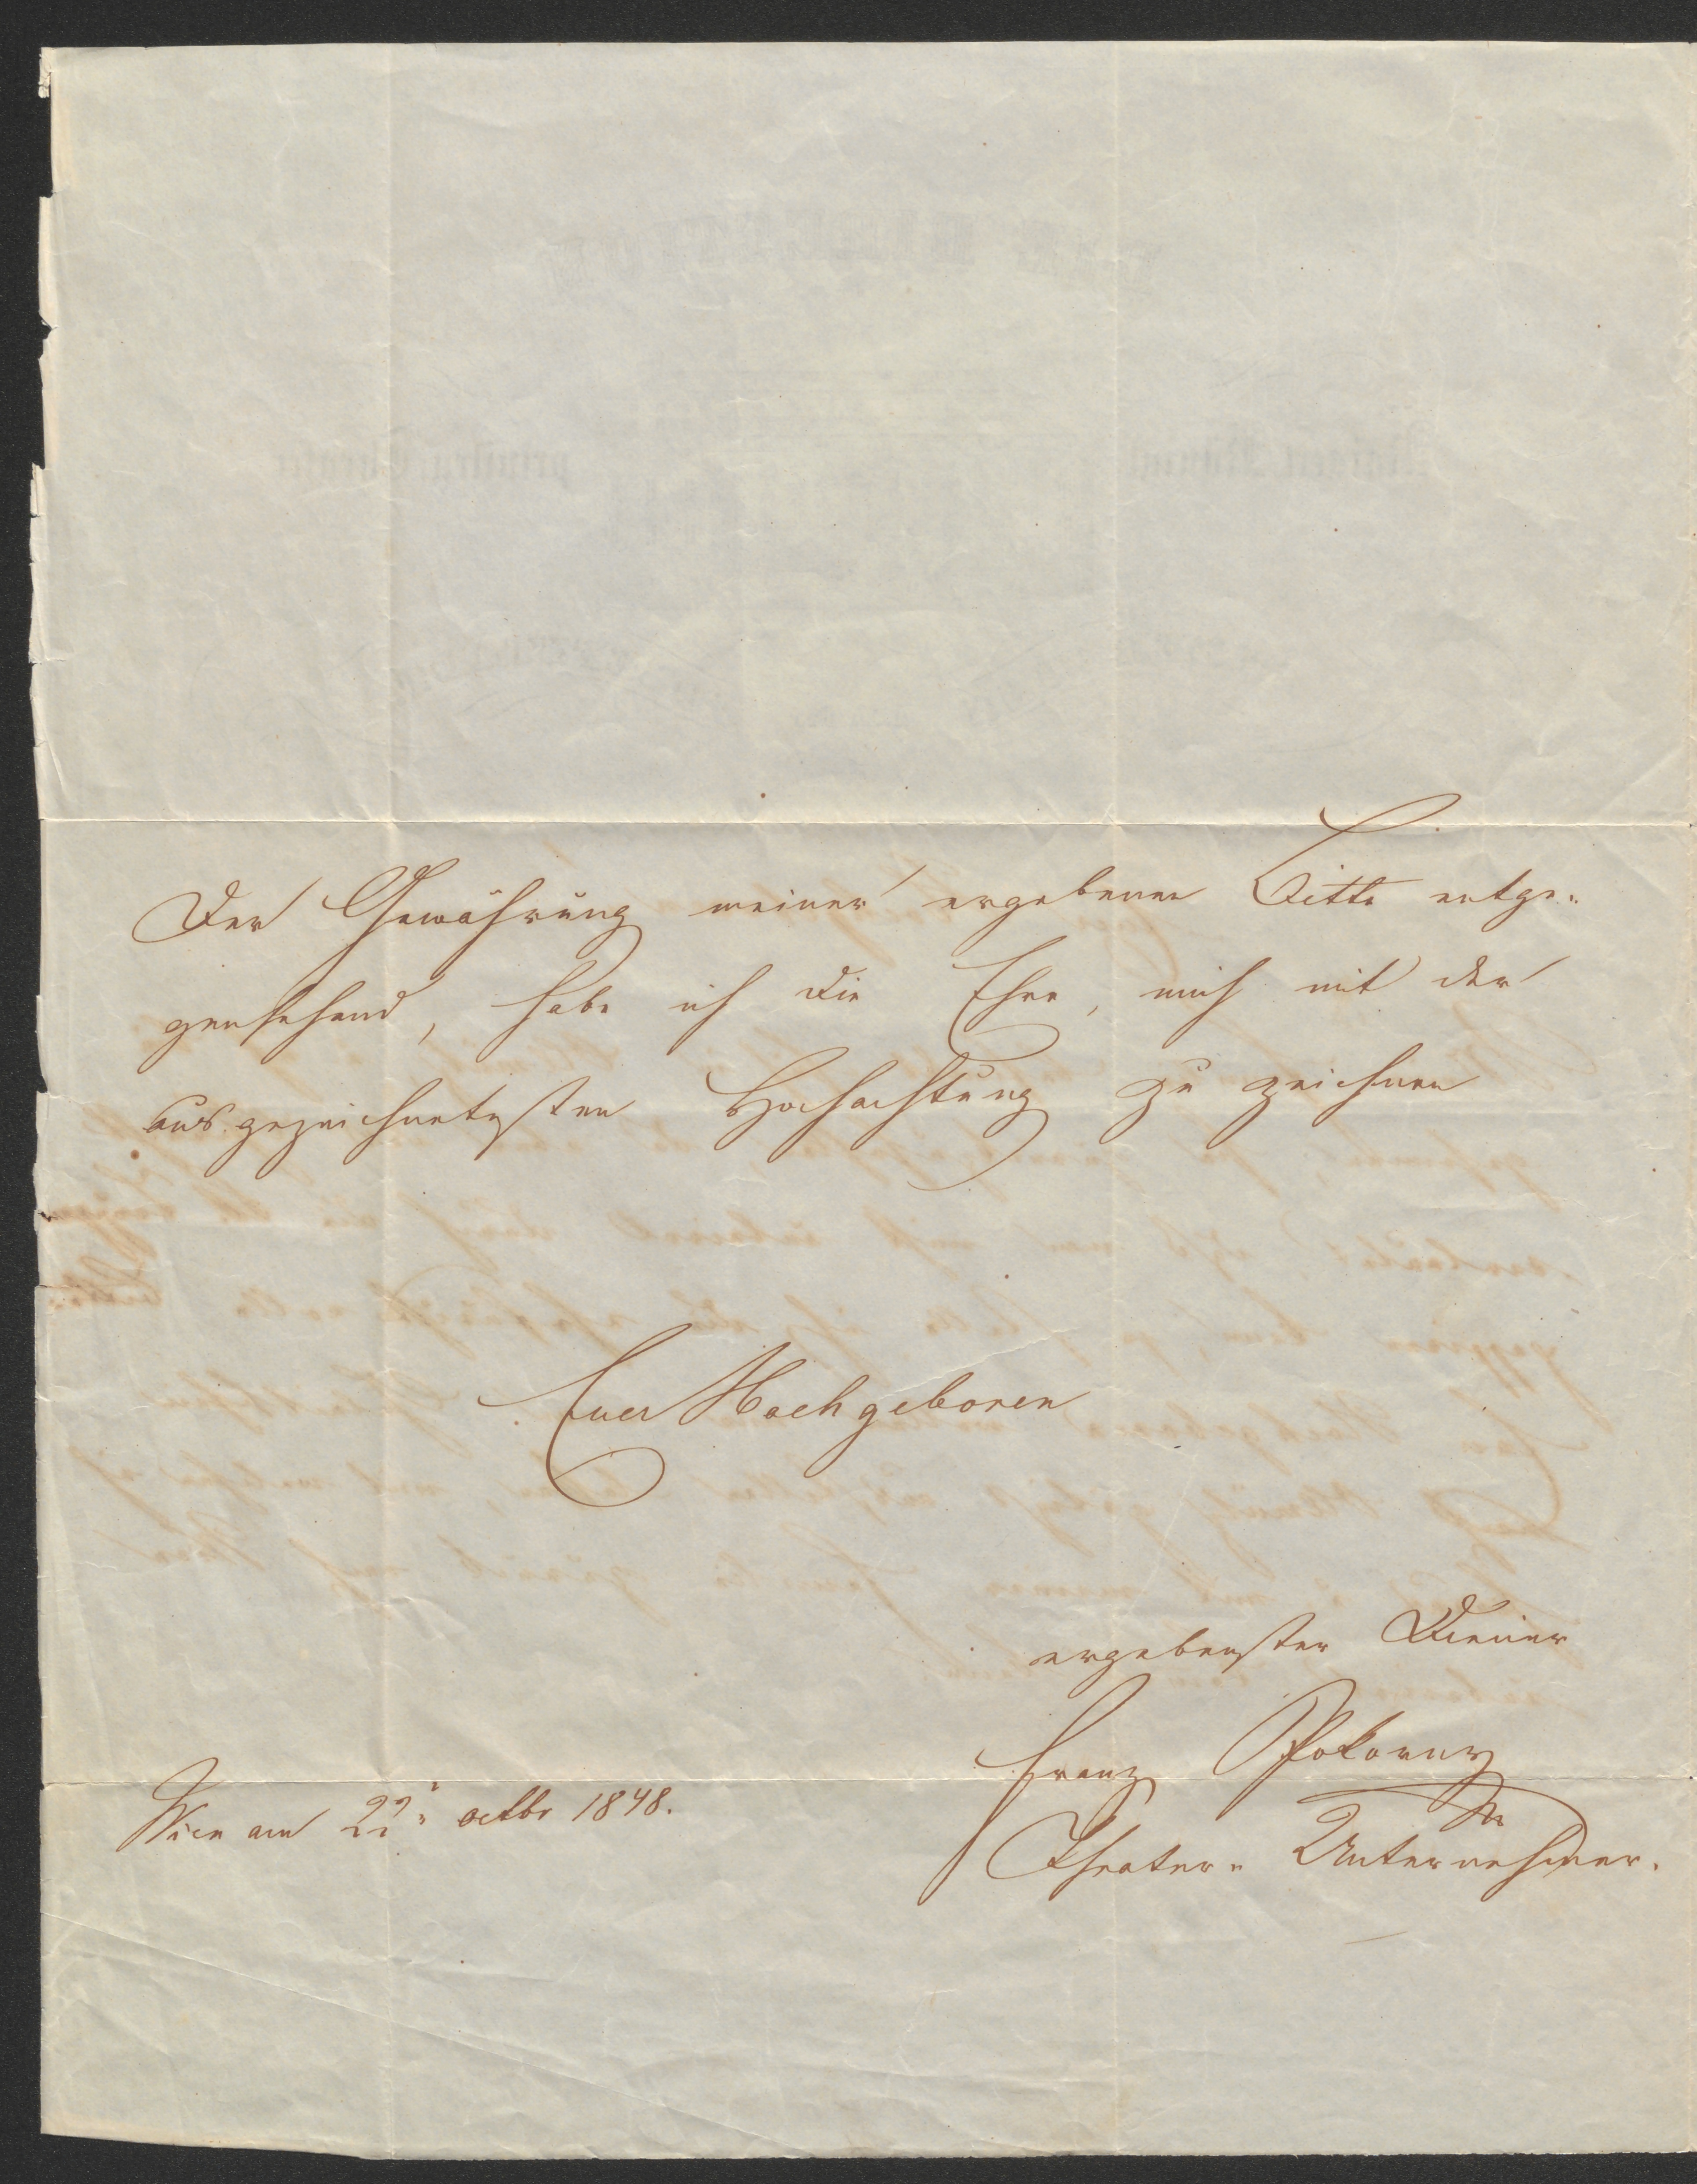 Der Gewährung meiner ergebenen Bitte entge„
gensehend, habe ich die Ehre, mich mit der
ausgezeichnetsten Hochachtung zu zeichnen
Euer Hochgeboren
ergebenster Diener
Franz Pokorny
Wien am 22„ octbr 1848.
Theater„ Unternehmer.